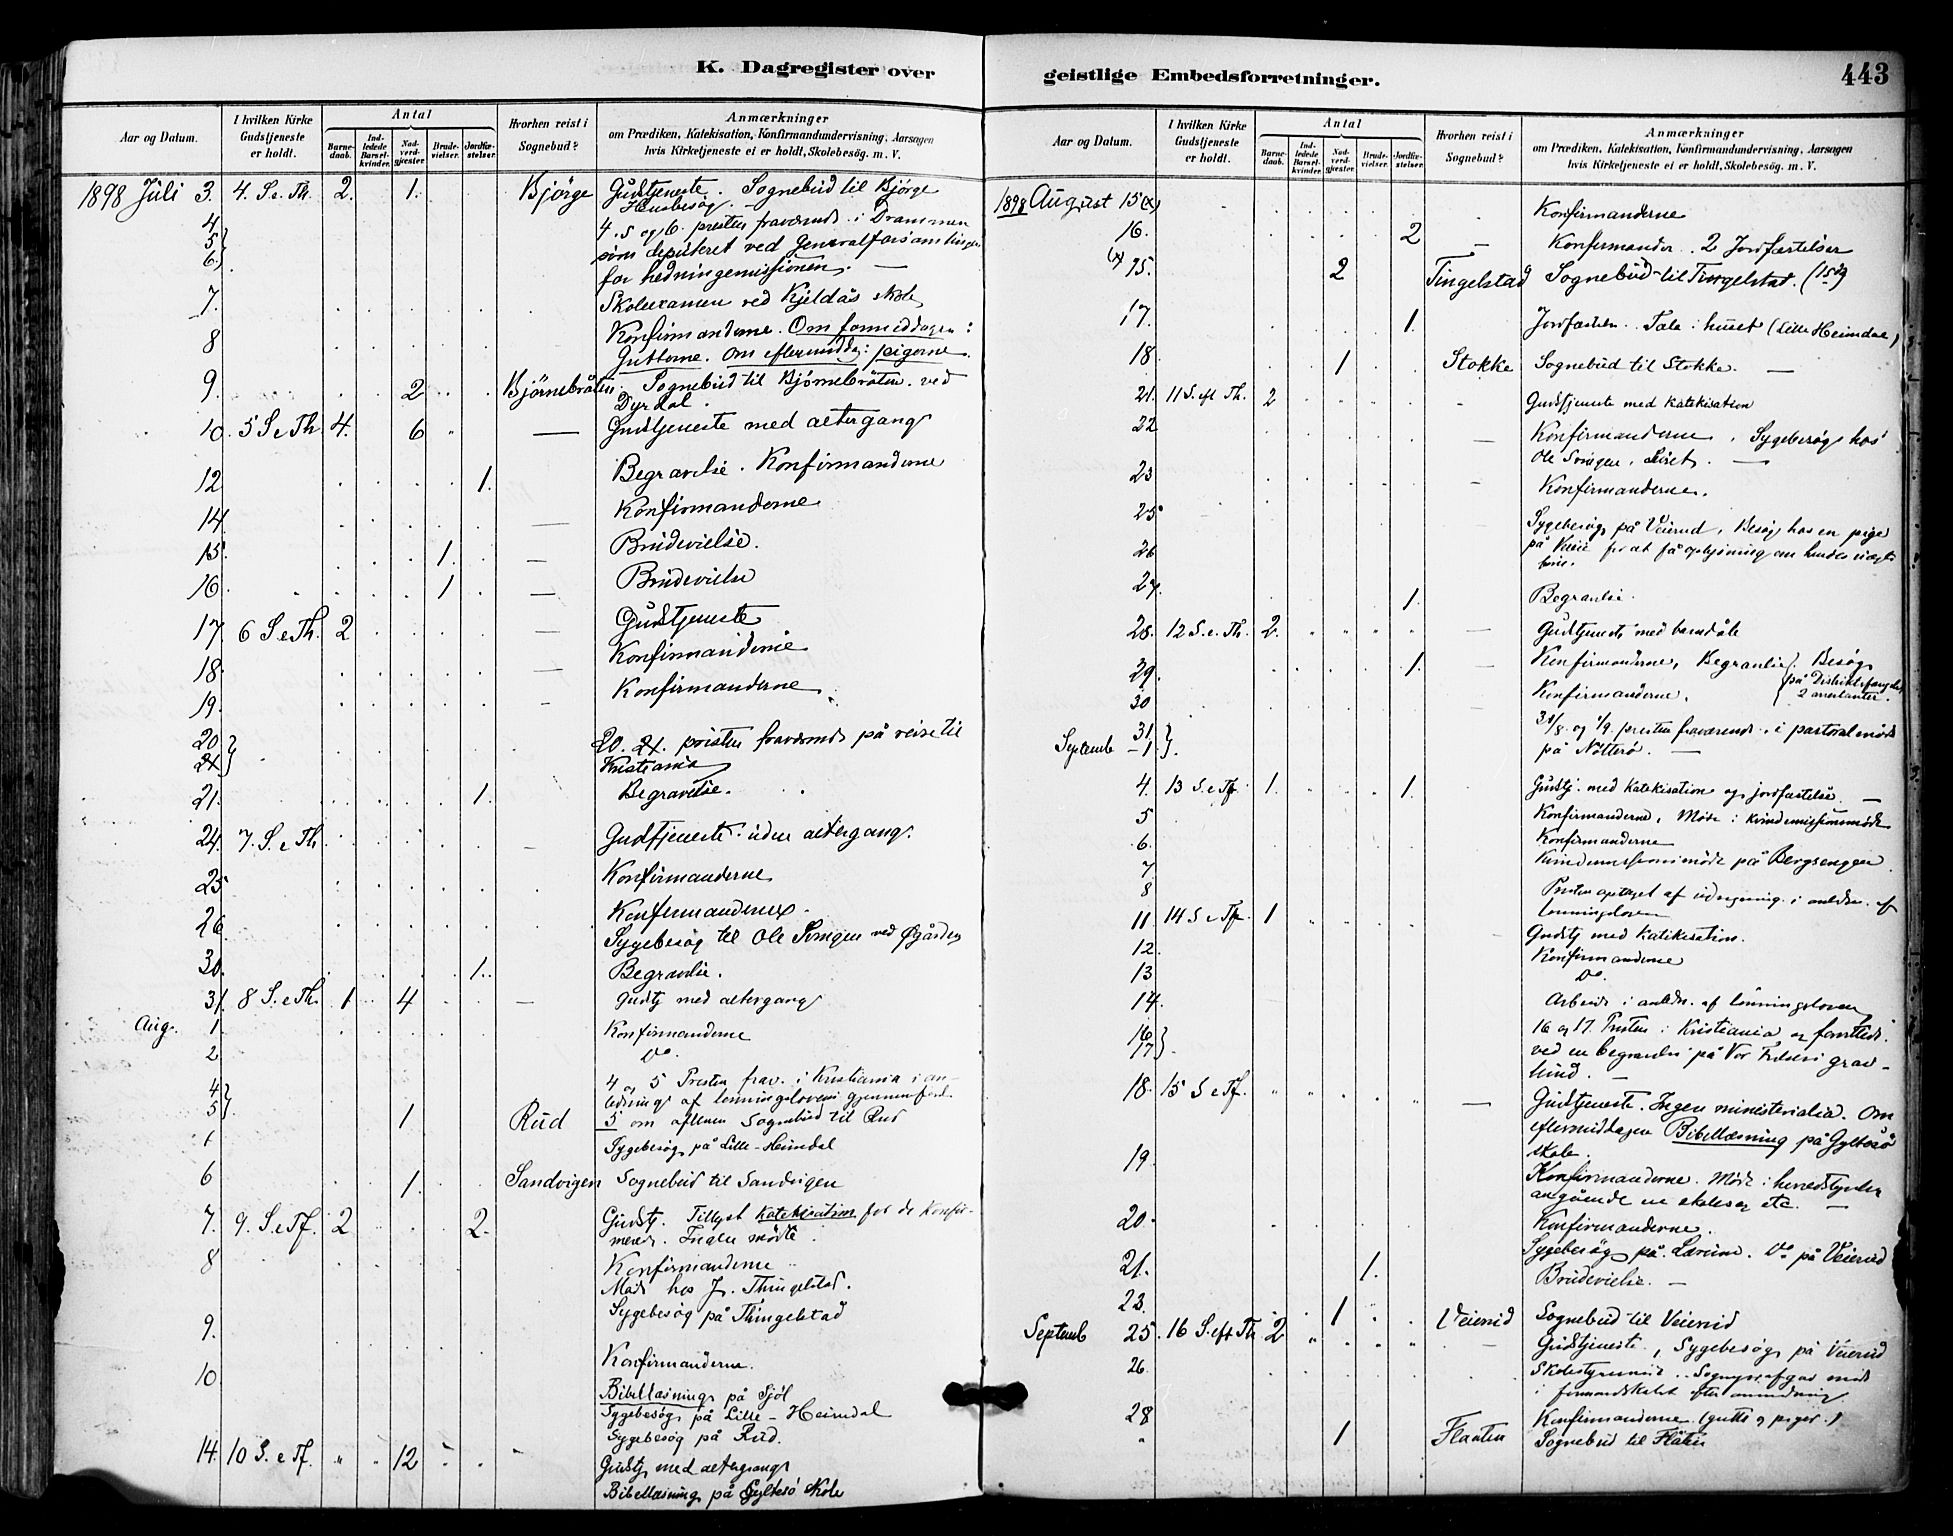 K. Dagregister over
Aar og Datum.
I hvilken Kirke Gudstjeneste er holdt.
Antal
Barnedaab.
Indledede Barselkvinder.
Nadverdgjester.
Brudevielser.
Jordfæstelser.
Hvorhen reist i Sognebud?
Anmærkninger
om Prædiken, Katekisation, Konfirmandundervisning, Aarsagen
hvis Kirketjeneste ei er holdt, Skolebesög. m. V.
1898 Juli 3. 4. S. e. Th. 2. 1. Bjørge Gudstjeneste. Sognebud til Bjørge
Husbesøg.
4 4. 5 og 6. presten fraværende i Drammen
5 som deputeret ved Generalforsamlingen
6. for hedningemissionen. —
7. Skoleexamen ved Kjeldås skole
8 Konfirmanderne. Om formiddagen:
Guttene. Om eftermiddag: pigerne.
9. 2 Bjørnebråten Sognebud til Bjørnebråten ved
Dyrdal.
10. 5 S e Th 4. 6 — Gudstjeneste med altergang
12 1. Begravelse. Konfirmanderne
14 — Konfirmanderne
15. 1. — Brudevielse.
16 1 — Brudevielse
17. 6 S. e Th. 2 — Gudstjeneste
18. Konfirmanderne
19. Konfirmanderne
20. 20. 21. presten fraværende på reise til
21. Kristiania
21. 1. Begravelse.
24. 7. S. e Th Gudstjeneste uden altergang.
25 Konfirmanderne
26. Konfirmanderne.
Sygebesøg til Ole Svingen ved Øgården
30. 1. Begravelse.
31. 8 S. e Th. 1 4 — Gudstj med altergang
Aug. 1. Konfirmanderne
2 Do.
4 4 og 5 Presten frav. i Kristiania i an-
5 ledning af lønningslovens gjennemførl.
1 Rud 5 om aftenen Sognebud til Rud
Sygebesøg på Lille-Heimdal
6 1. Sandvigen Sognebud til Sandvigen
7. 9. S. e Tf. 2 2. Gudstj. Tillyst Katekisation for de konfir-
merede. Ingen mødte.
8 Konfirmanderne
Møde hos J. Thingelstad.
Sygebesøg på Thingelstad
9.
10 Konfirmanderne.
Bibellæsning på Sjøl
Sygebesøg på Lille-Heimdal
Sygebesøg på Rud.
14. 10 S. e Tf. 12 Gudstj med altergang
Bibellæsning på Gyltesø skole
geistlige Embedsforretninger.
443
Aar og Datum.
I hvilken Kirke Gudstjeneste er holdt.
Antal
Barnedaab.
Indledede Barselkvinder.
Nadverdgjester.
Brudevielser.
Jordfæstelser.
Hvorhen reist i Sognebud?
Anmærkninger
om Prædiken, Katekisation, Konfirmandundervisning, Aarsagen
hvis Kirketjeneste ei er holdt, Skolebesög. m. V.
1898 August 15 (x) Konfirmanderne
16. 2 — Konfirmander. 2 Jordfæstelser
(x) 15. 2 Tingelstad Sognebud til Tingelstad. (15de)
17. 1. Jordfæstelse. Tale i huset (Lille Heimdal)
18 1 Stokke Sognebud til Stokke. —
21. 11 S. eft Th. 2 Gudstjeneste med katekisation
22 — Konfirmanderne. Sygebesøg hos
Ole Svingen, —
23 Konfirmanderne.
25 Sygebesøg på Veierud. Besøg hos en pige
26 på for at få oplysning om hendes
27. 1. Begravelse.
28. 12 S. e. Th. 2. — Gudstjeneste med barnedåb
29. 1. — Konfirmanderne, Begravelse. Besøg
på Distriktsfængslet
30 Konfirmanderne. 2 arrestanter.
31. 31/8. og 1/9. presten fraværende i pastoralmøde
Septemb — 1. på Nøtterø. —
4. 13 S. e Tf. 1. 1. Gudstj. med Katekisation og jordfæstelse —
5 Konfirmanderne, Møde i kvindemissionsmøde
6. Konfirmanderne
7 Kvindemissionsmøde på Bergsenggen
8 Presten optaget af udregning i anledn. af
lønningsloven
11. 14 S e Tf. 1 Gudstj med Katekisation.
12. Konfirmanderne
13 Do.
14. Arbeide i anledn. af lønningsloven
16 16 og 17. Presten i Kristiania og forrettede
17. ved en begravelse på Vor Frelsers grav-
lund. —
18. 15 S e Tf. — Gudstjeneste. Ingen ministerialia. Om
eftermiddagen Bibellæsning på Gyltesø
skole.
19. Konfirmanderne. Møde i herredstyret
angående en skolesag etc. —
20. Konfirmanderne.
Sygebesøg på Do på Veierud
21. 1. Brudevielse. —
23. 1 Veierud Sognebud til Veierud
Septemb 25. 16 S. eft Th 2 — Gudstjeneste, Sygebesøg på Veierud
26.
i formandskabet efter anmodning
28 Konfirmanderne (gutter og piger.)
" 1 Flaaten Sognebud til Flåten